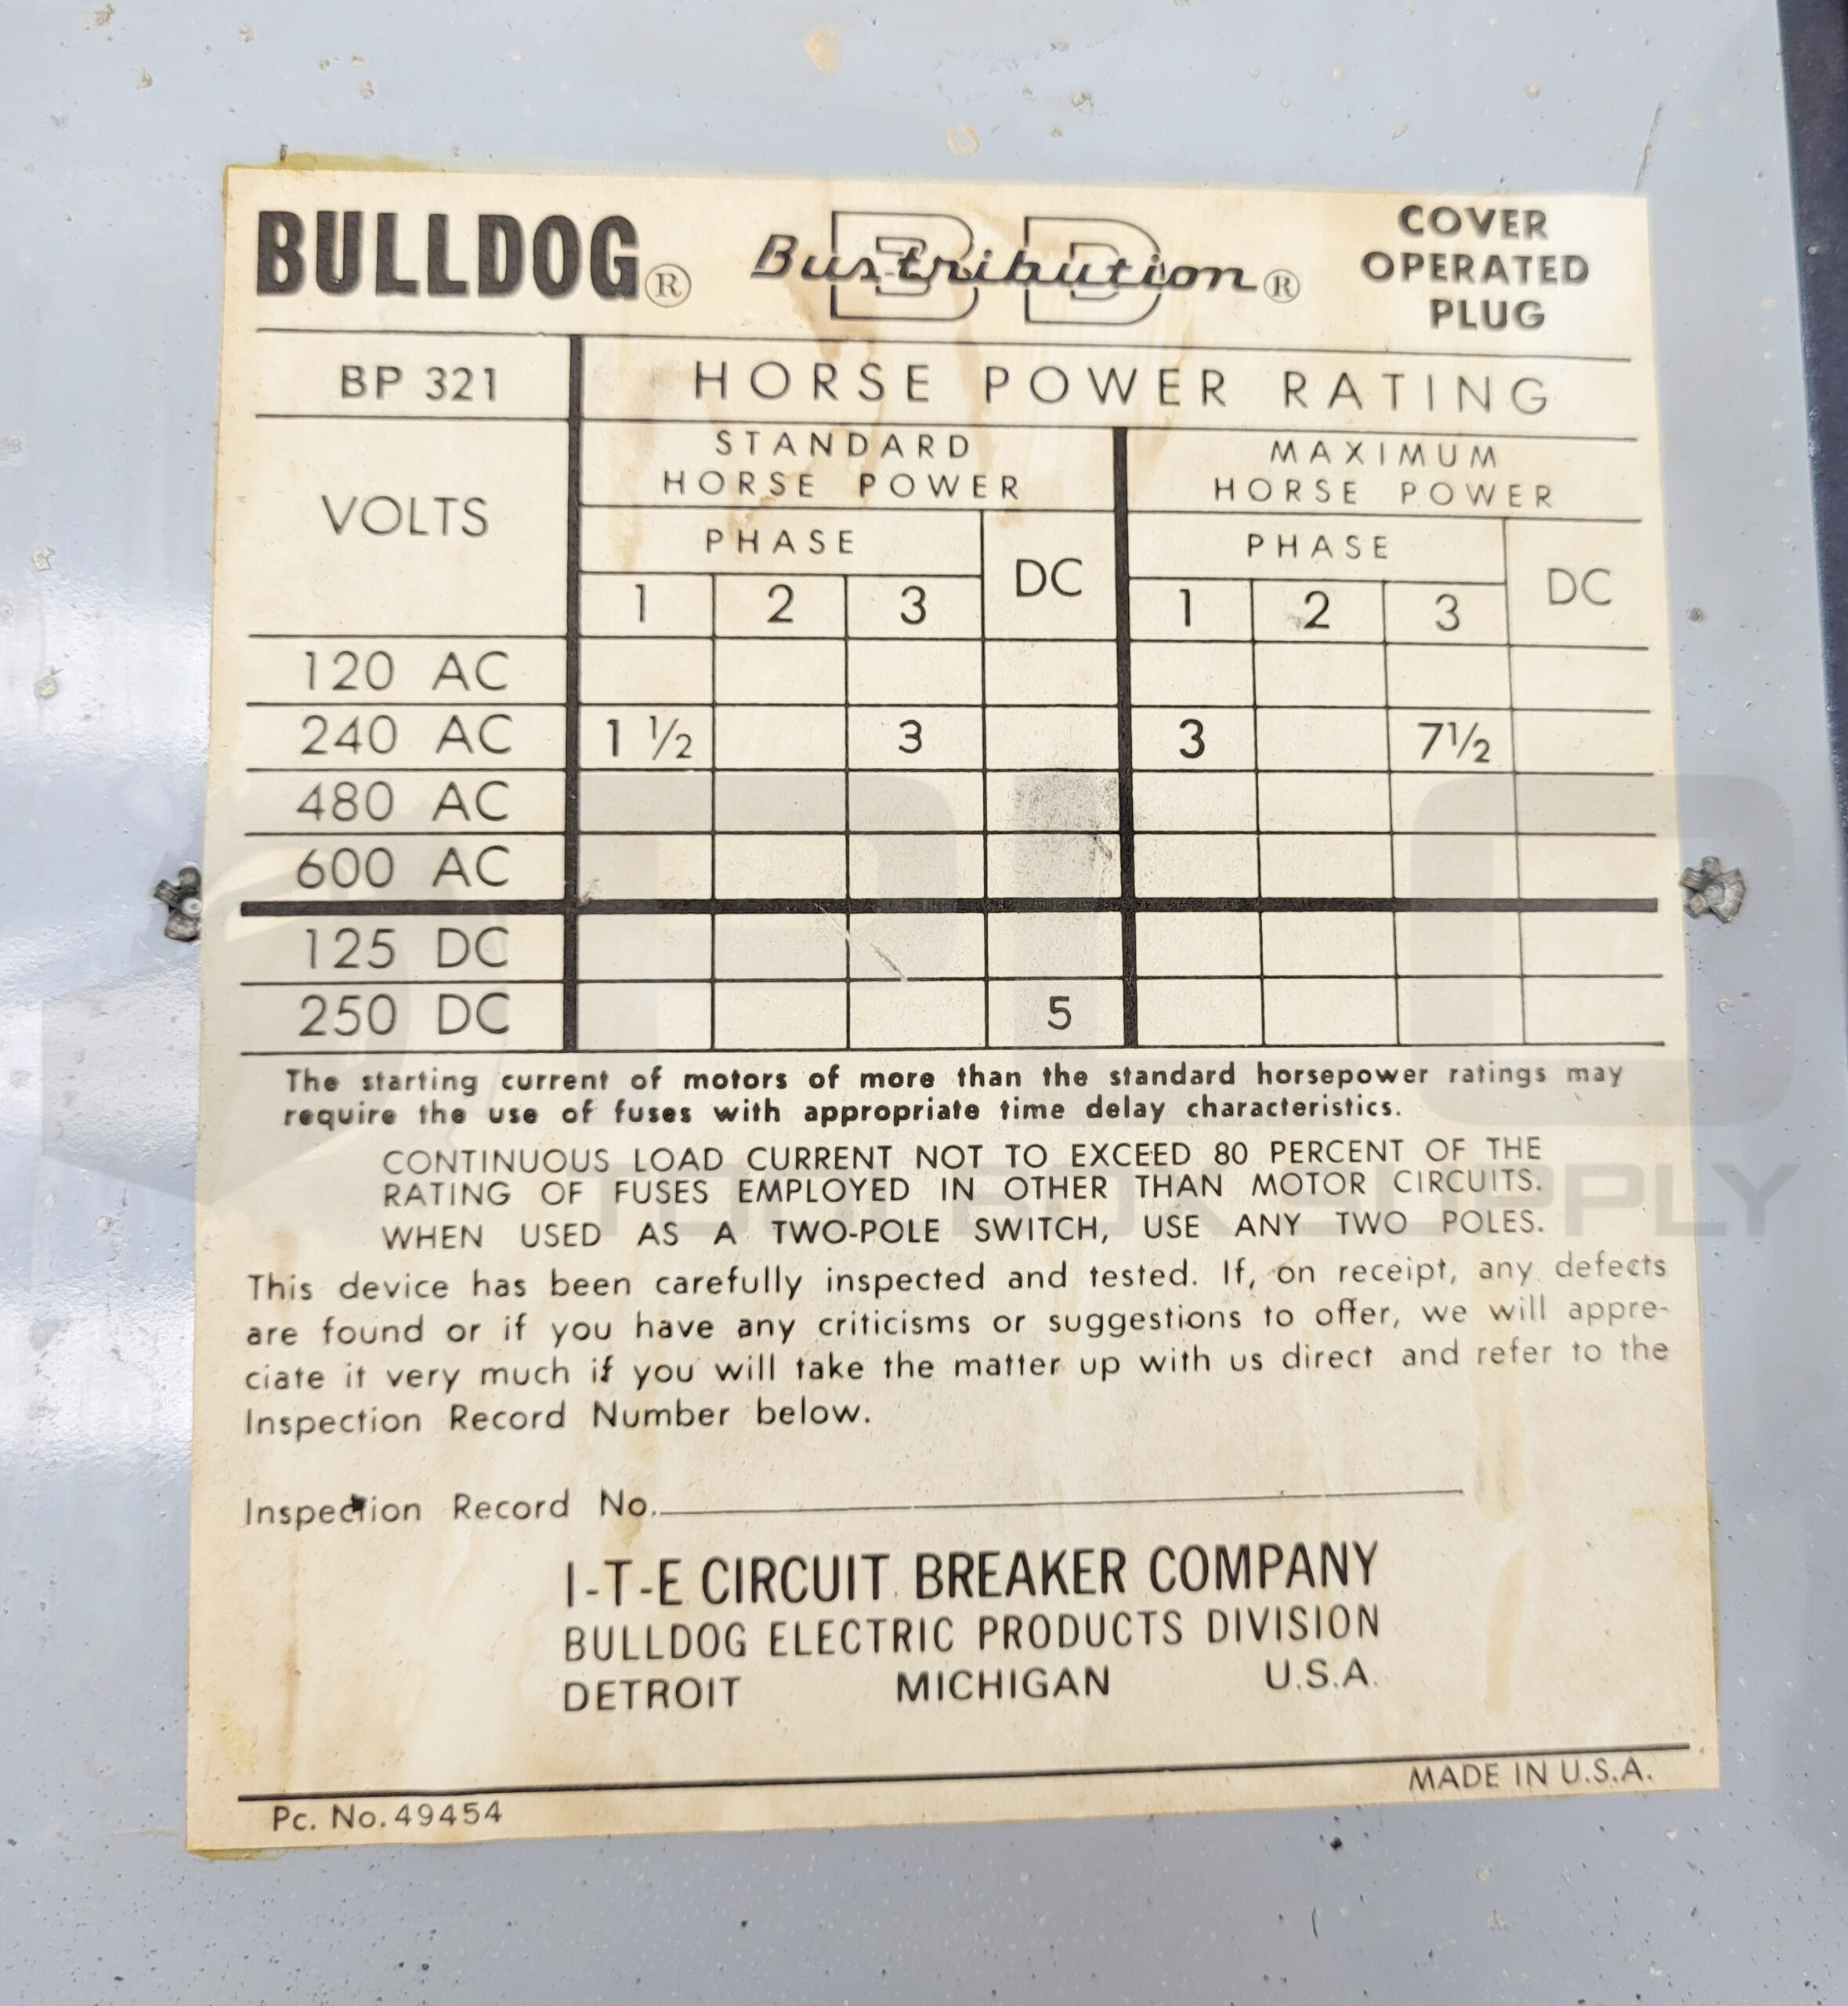 BULLDOG® BD Bustribution® COVER
OPERATED
PLUG
BP 321 HORSE POWER RATING
VOLTS STANDARD MAXIMUM
HORSE POWER HORSE POWER
PHASE DC PHASE DC
1 2 3 1 2 3
120 AC
240 AC 1 ½ 3 3 7½
480 AC
600 AC
125 DC
250 DC 5
The starting current of motors of more than the standard horsepower ratings may
require the use of fuses with appropriate time delay characteristics.
CONTINUOUS LOAD CURRENT NOT TO EXCEED 80 PERCENT OF THE
RATING OF FUSES EMPLOYED IN OTHER THAN MOTOR CIRCUITS.
WHEN USED AS A TWO-POLE SWITCH, USE ANY TWO POLES.
This device has been carefully inspected and tested. If, on receipt, any defects
are found or if you have any criticisms or suggestions to offer, we will appre-
ciate it very much if you will take the matter up with us direct and refer to the
Inspection Record Number below.
Inspection Record No.
I-T-E CIRCUIT BREAKER COMPANY
BULLDOG ELECTRIC PRODUCTS DIVISION
DETROIT MICHIGAN U.S.A.
MADE IN U.S.A.
Pc. No. 49454